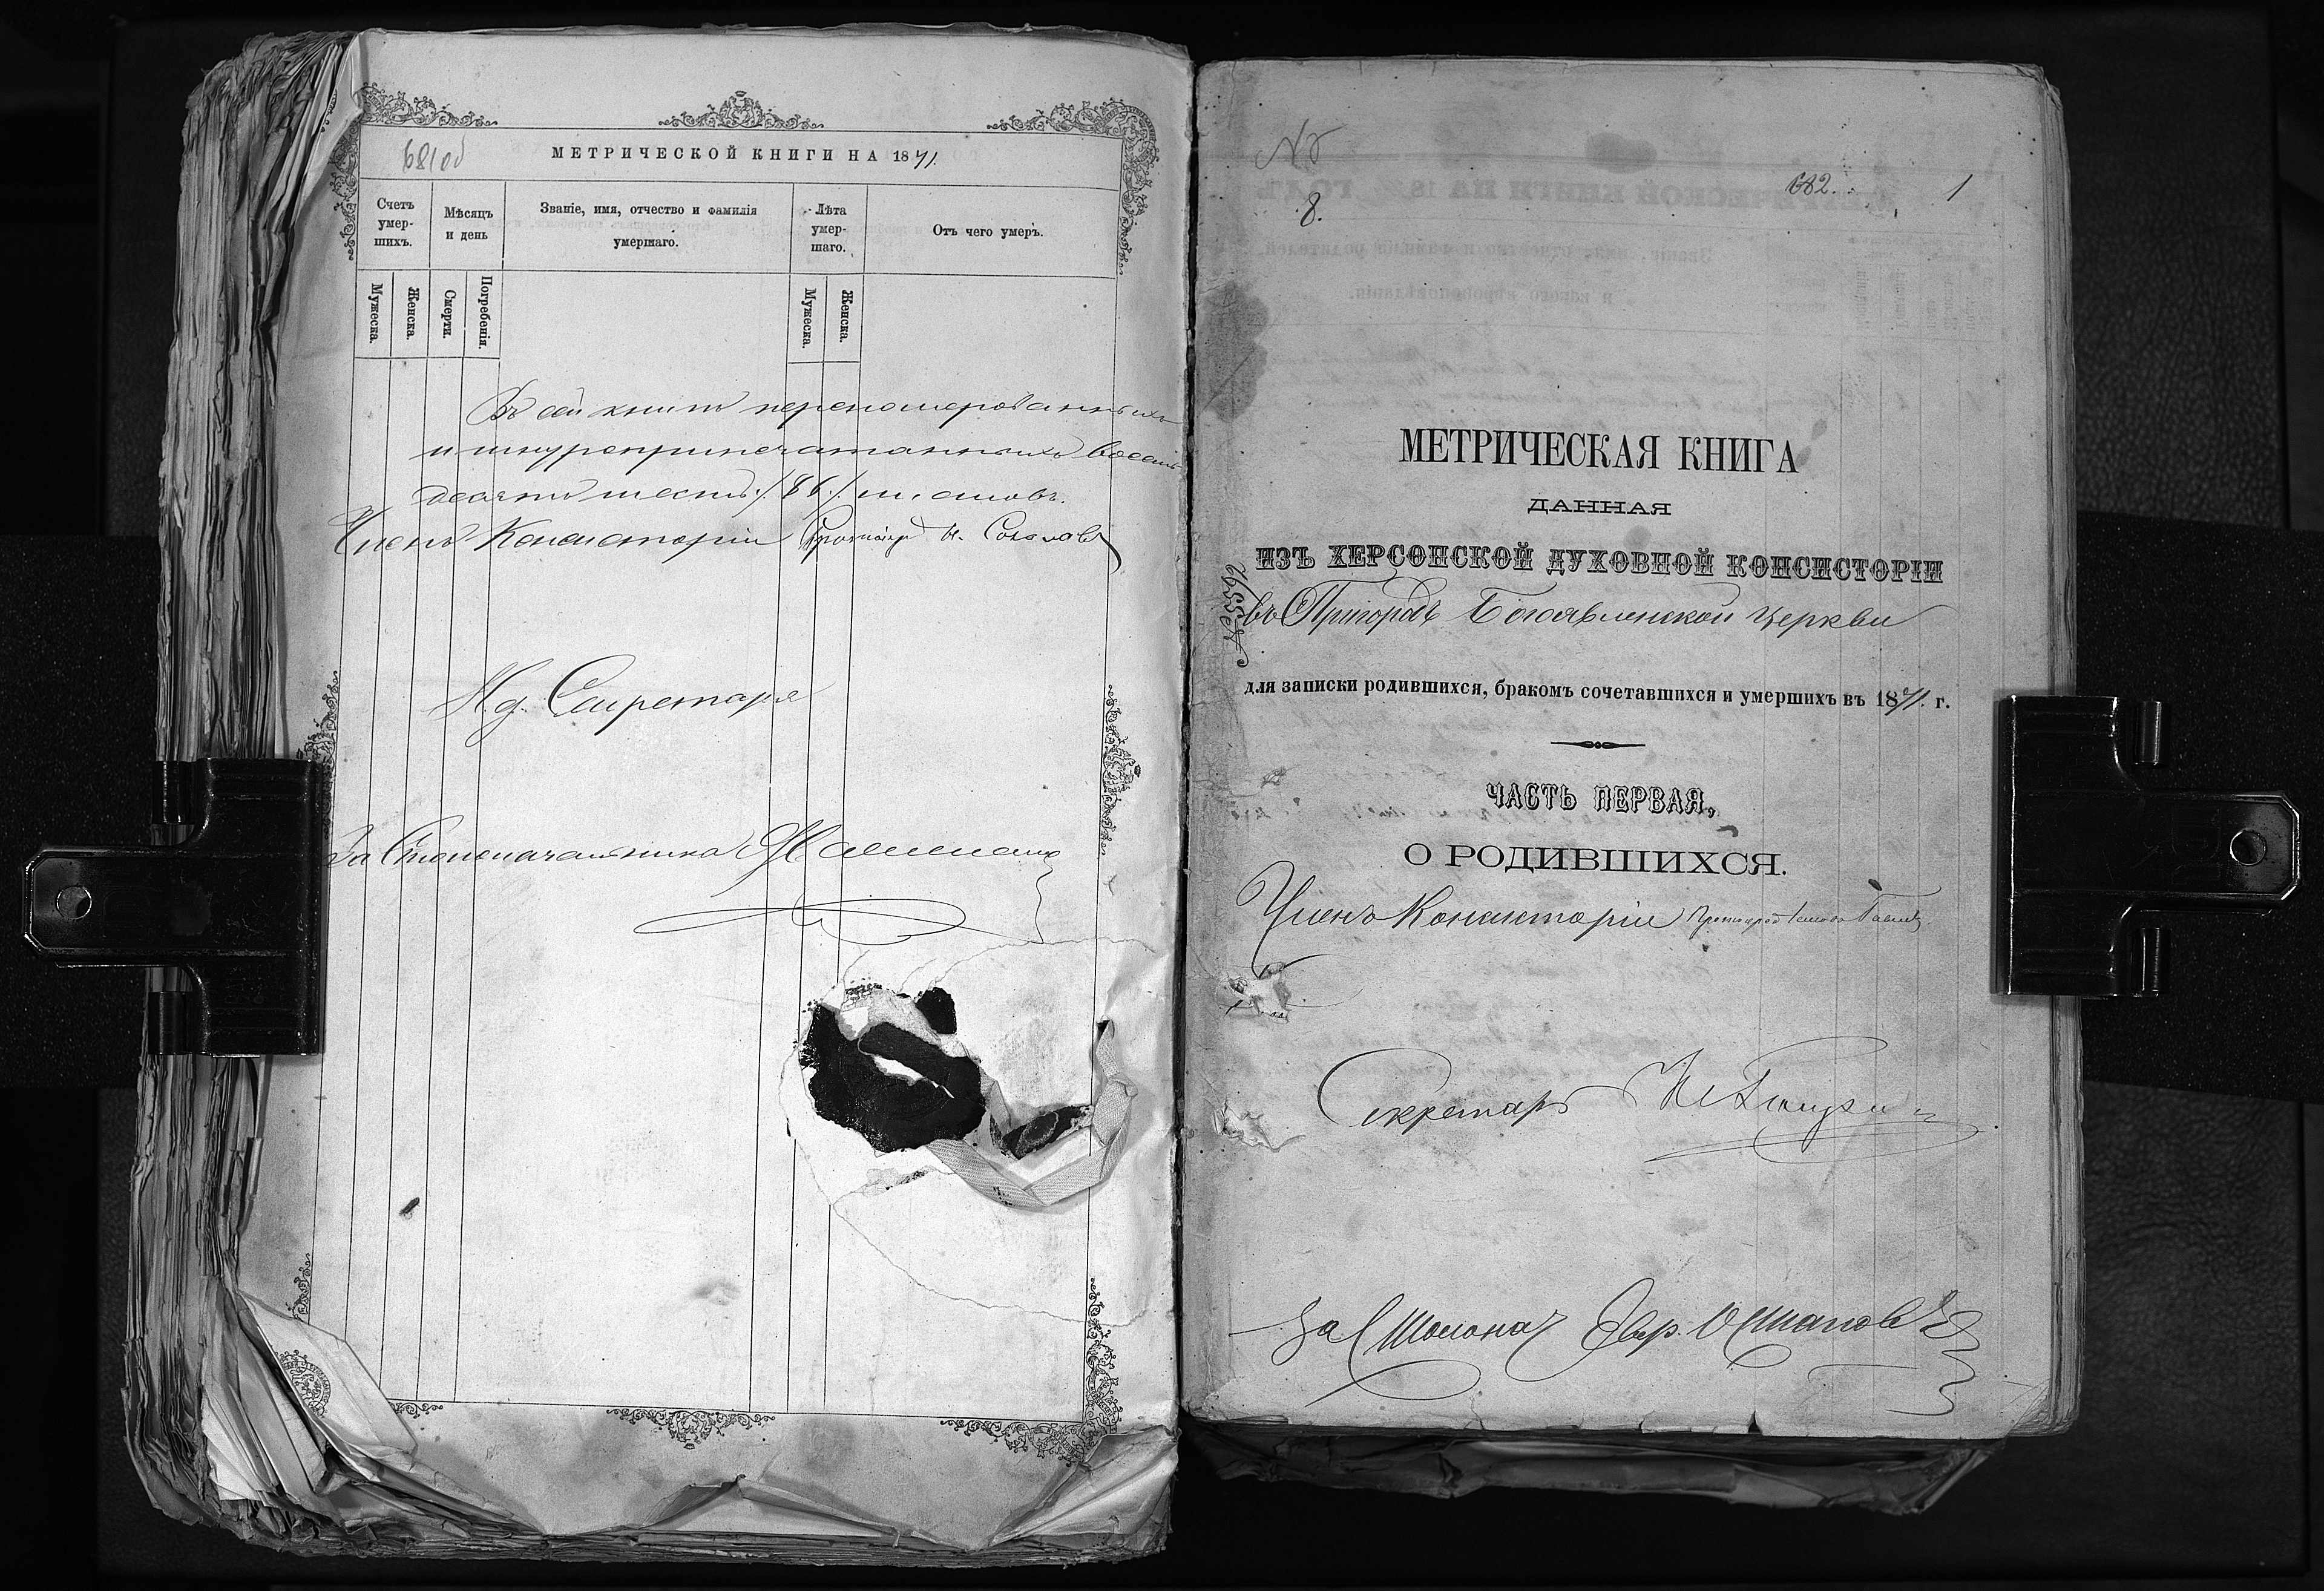 681 об
МЕТРИЧЕСКОЙ КНИГИ НА 1871.
Счетъ умер-шихъ.
Мѣсяцъ и день
Званіе, имя, отчество и фамилія умершаго.
Лѣта умер-шаго.
Отъ чего умеръ.
Мужеска.
Женска.
Смерти.
Погребенія.
Мужеска.
Женска.
Въ сей книгѣ переномерованныхъ
и шнуроприпечатанныхъ восемь
десятъ шесть /86/ листовъ.
Членъ Консисторіи Протоіерей Н. Соколовъ
И д. Секретаря
За Столоначальника
№
8.
682.
1
МЕТРИЧЕСКАЯ КНИГА
ДАННАЯ
ИЗЪ ХЕРСОНСКОЙ ДУХОВНОЙ КОНСИСТОРІИ
въ Пригородъ Богоявленской церкви
для записки родившихся, бракомъ сочетавшихся и умершихъ въ 1871. г.
ЧАСТЬ ПЕРВАЯ,
О РОДИВШИХСЯ.
Членъ Консисторіи
Секретарь
За Столонач